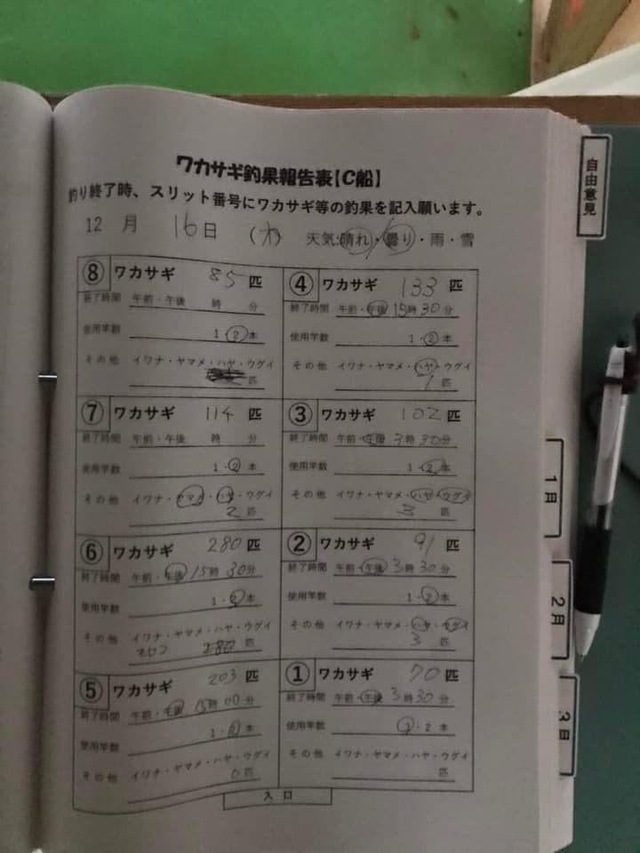 ワカサギ釣果報告表【C船】
釣り終了時、スリット番号にワカサギ等の釣果を記入願います。
12 月 16日 (水) 天気:晴れ・曇り・雨・雪
⑧ ワカサギ 85 匹
終了時間 午前・午後 時 分
使用竿数 1・2本
その他 イワナ・ヤマメ・ハヤ・ウグイ
匹
④ ワカサギ 133 匹
終了時間 午前・午後 15時30分
使用竿数 1・2本
その他 イワナ・ヤマメ・ハヤ・ウグイ
1 匹
⑦ ワカサギ 114 匹
終了時間 午前・午後 時 分
使用竿数 1・2本
その他 イワナ・ヤマメ・ハヤ・ウグイ
2 匹
③ ワカサギ 102 匹
終了時間 午前・午後 3時30分
使用竿数 1・2本
その他 イワナ・ヤマメ・ハヤ・ウグイ
3 匹
⑥ ワカサギ 280 匹
終了時間 午前・午後 15時30分
使用竿数 1・2本
その他 イワナ・ヤマメ・ハヤ・ウグイ
匹
② ワカサギ 91 匹
終了時間 午前・午後 3時30分
使用竿数 1・2本
その他 イワナ・ヤマメ・ハヤ・ウグイ
3 匹
⑤ ワカサギ 203 匹
終了時間 午前・午後 15時00分
使用竿数 1・2本
その他 イワナ・ヤマメ・ハヤ・ウグイ
0 匹
① ワカサギ 70 匹
終了時間 午前・午後 3時30分
使用竿数 1・2本
その他 イワナ・ヤマメ・ハヤ・ウグイ
匹
入口
自由意見
1月
2月
3月